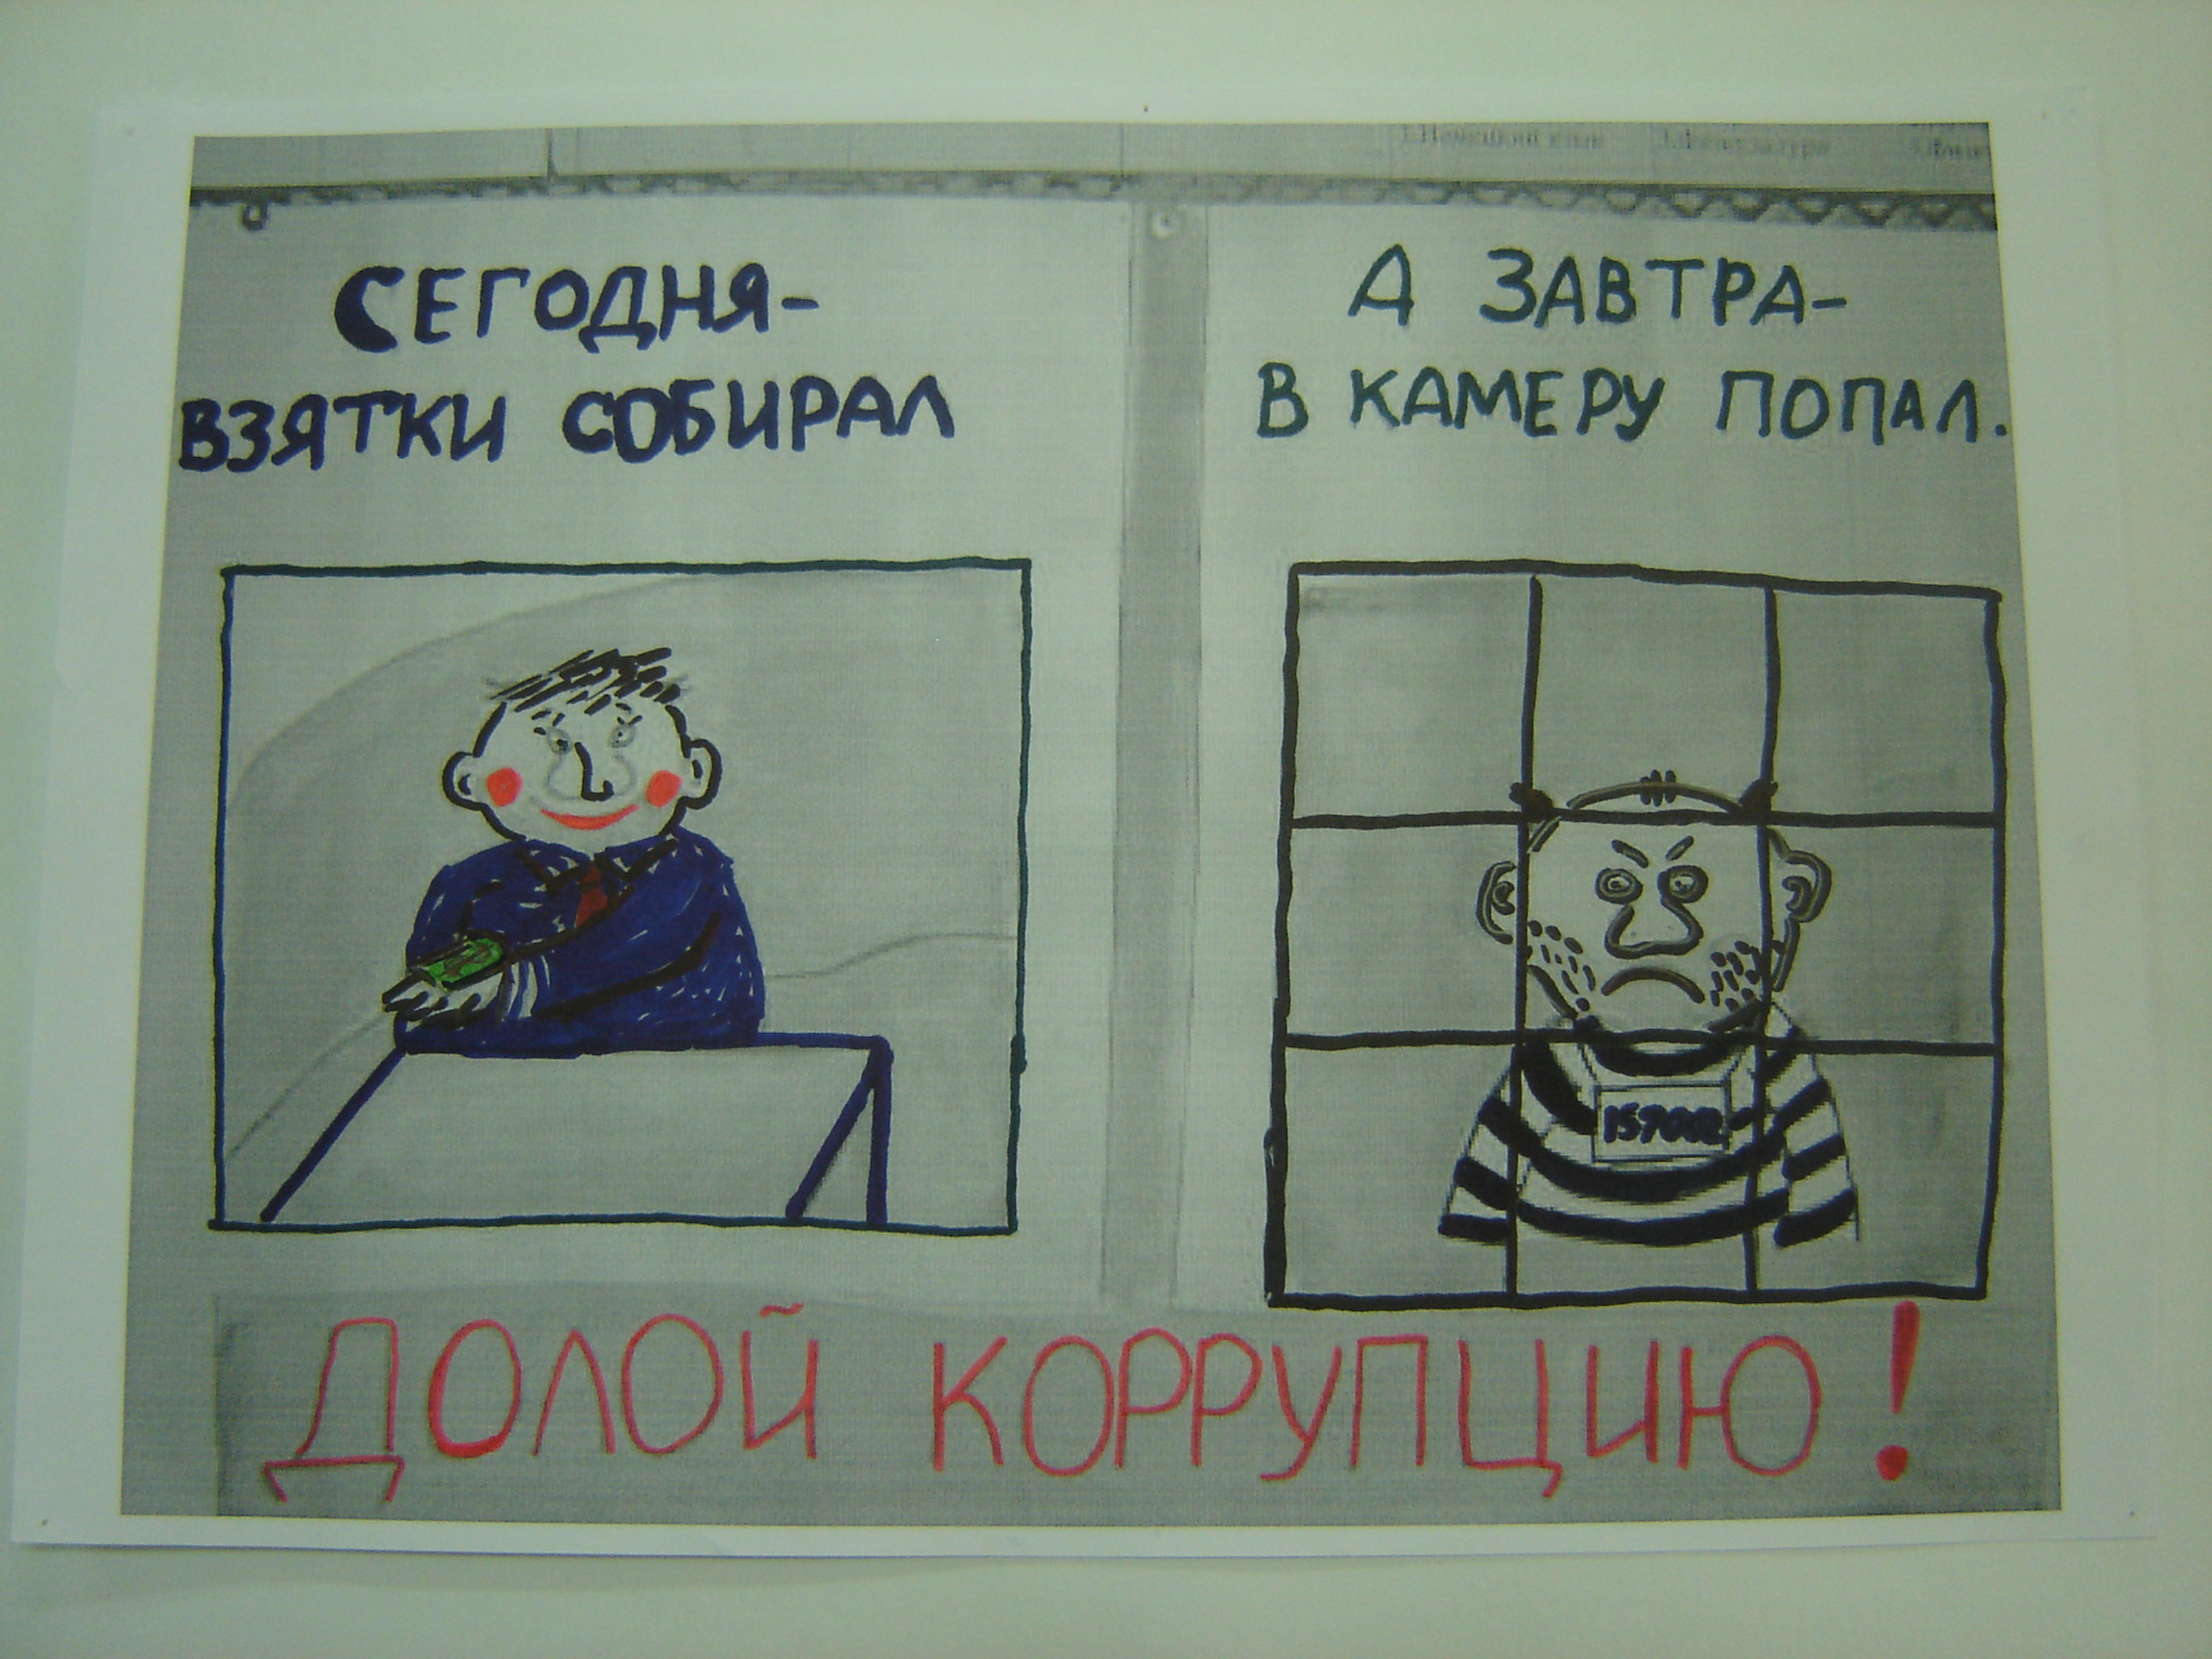 1.Немецкий язык
СЕГОДНЯ-
ВЗЯТКИ СОБИРАЛ
А ЗАВТРА-
В КАМЕРУ ПОПАЛ.
157002
ДОЛОЙ КОРРУПЦИЮ!